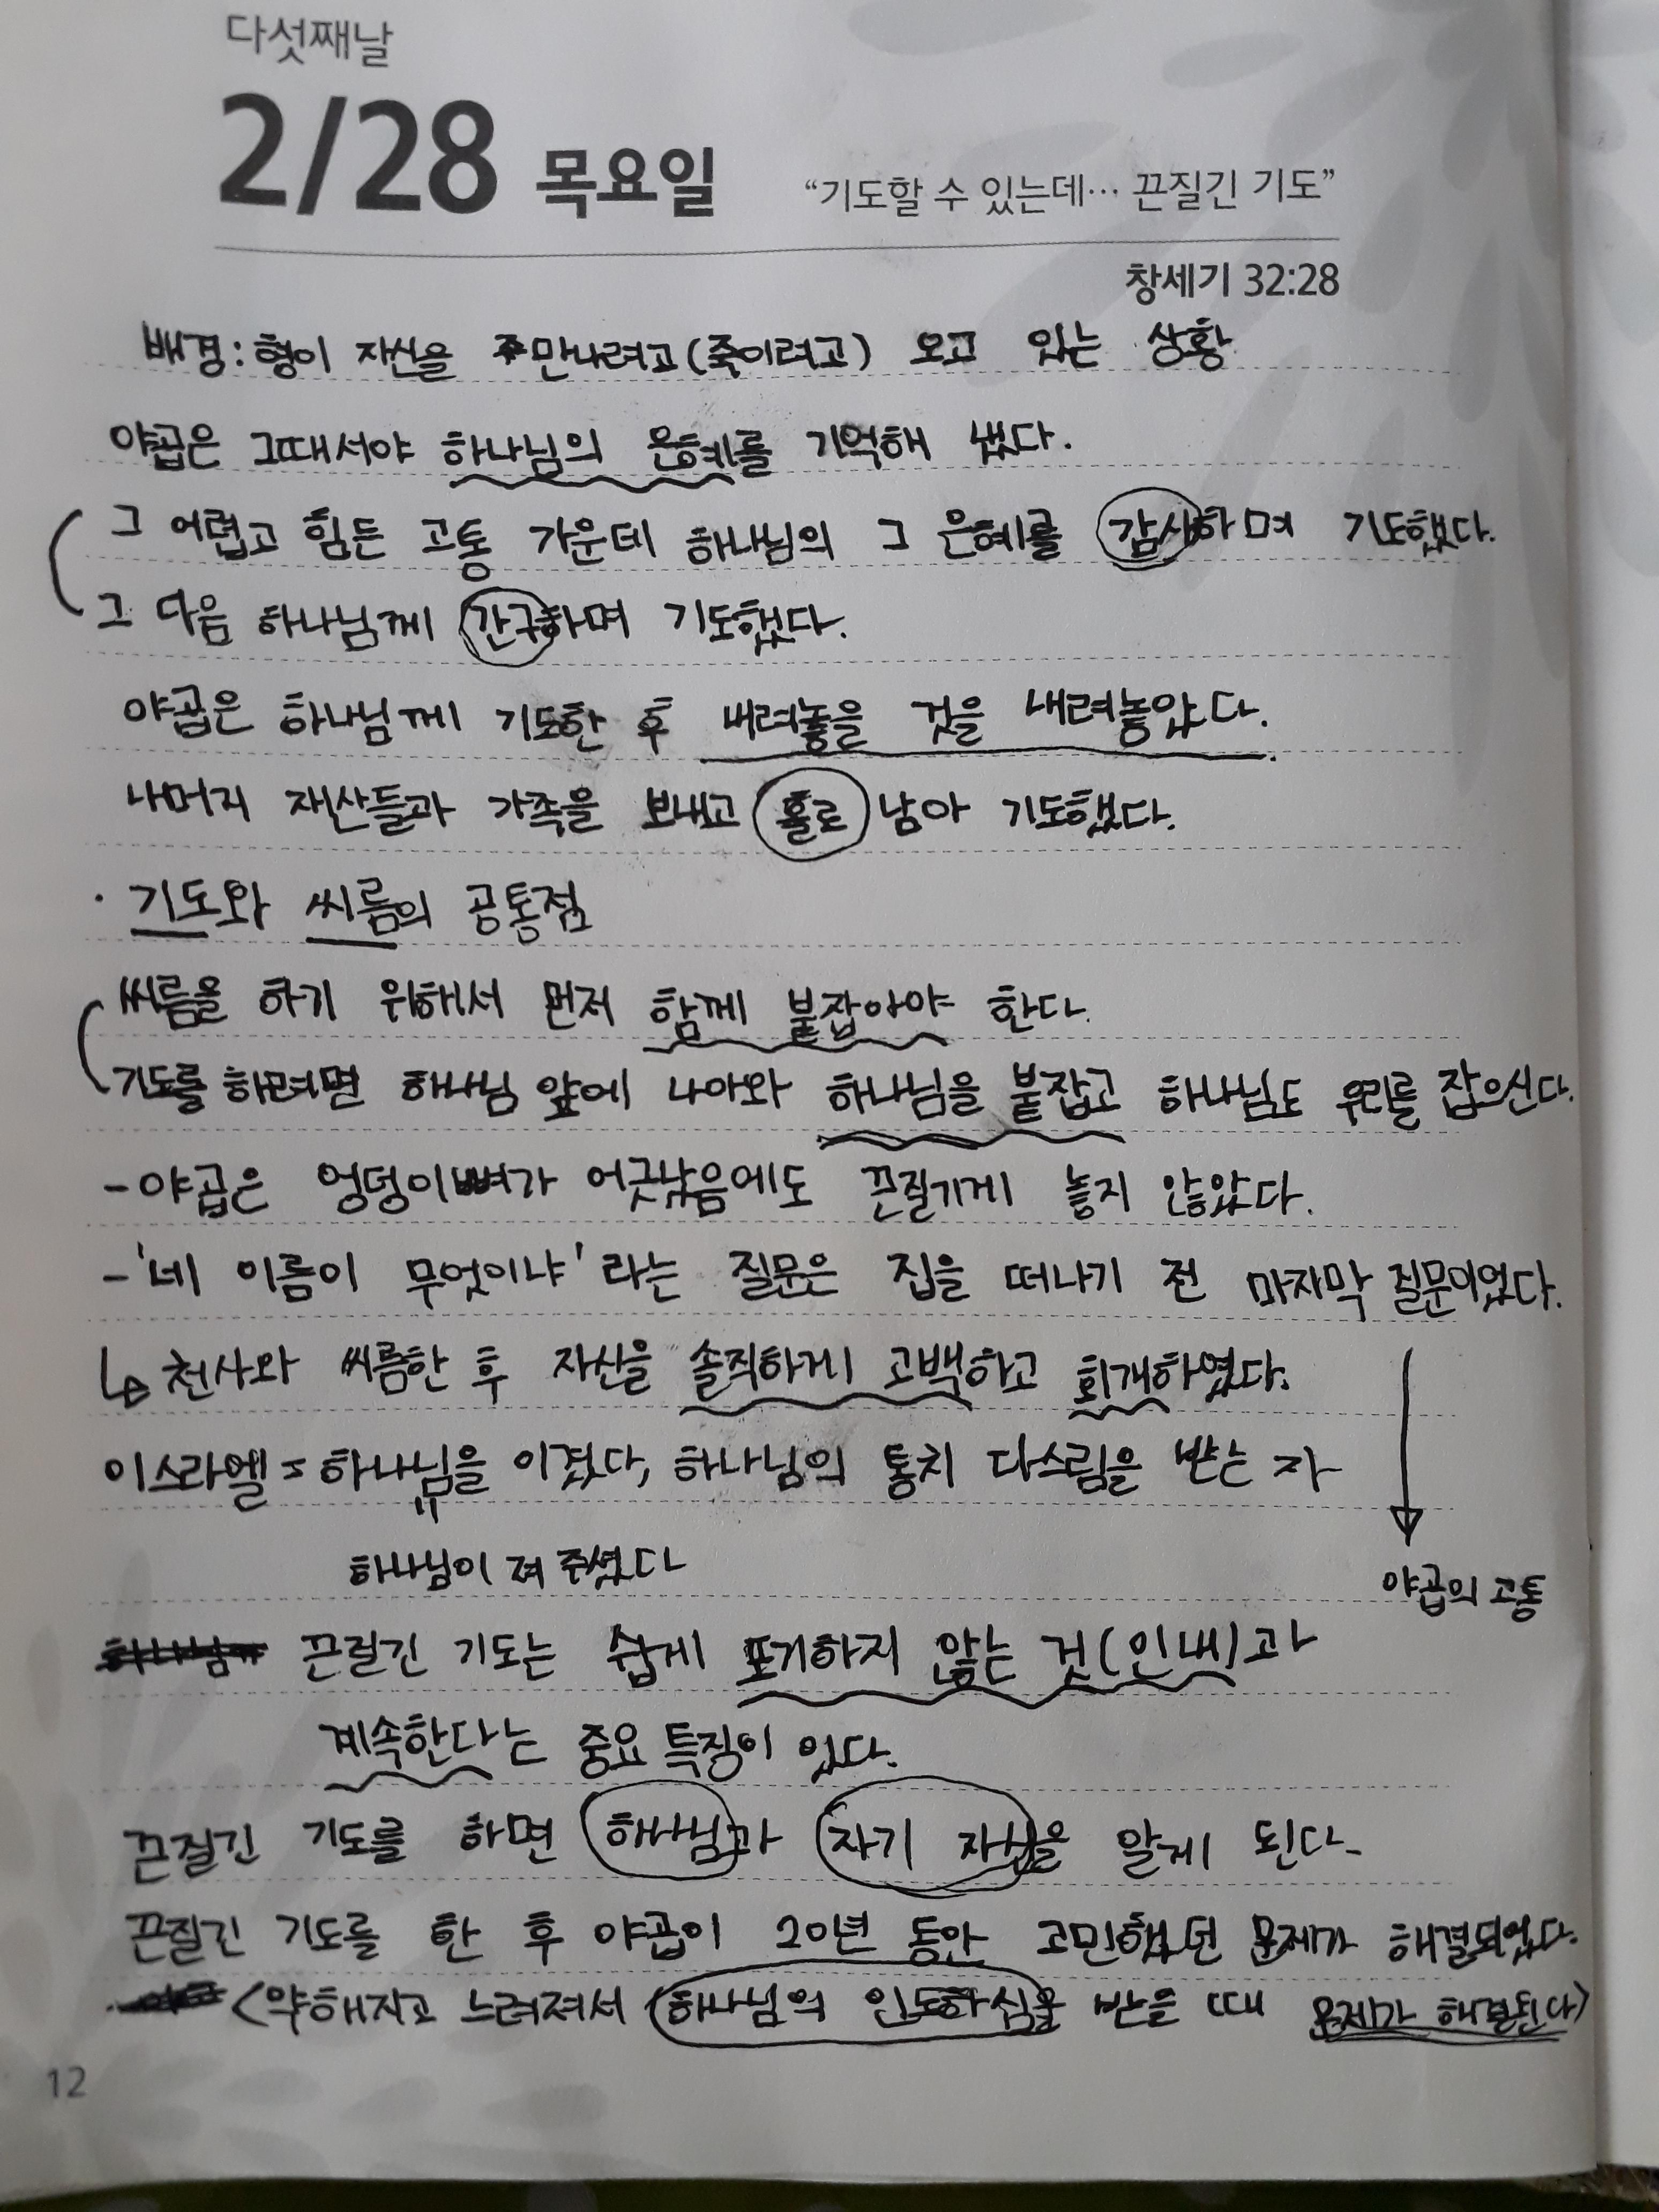 다섯째날
2/28 목요일 “기도할 수 있는데… 끈질긴 기도”
창세기 32:28
배경: 형이 자신을 만나려고(죽이려고) 오고 있는 상황
야곱은 그때서야 하나님의 은혜를 기억해 냈다.
그 어렵고 힘든 고통 가운데 하나님의 그 은혜를 감사하며 기도했다.
그 다음 하나님께 간구하며 기도했다.
야곱은 하나님께 기도한 후 내려놓을 것을 내려놓았다.
나머지 재산들과 가족을 보내고 홀로 남아 기도했다.
· 기도와 씨름의 공통점
씨름을 하기 위해서 먼저 함께 붙잡아야 한다.
기도를 하려면 하나님 앞에 나아와 하나님을 붙잡고 하나님도 우리를 잡으신다.
- 야곱은 엉덩이뼈가 어긋났음에도 끈질기게 놓지 않았다.
- '네 이름이 무엇이냐' 라는 질문은 집을 떠나기 전 마지막 질문이었다.
↳ 천사와 씨름한 후 자신을 솔직하게 고백하고 회개하였다.
이스라엘 = 하나님을 이겼다, 하나님의 통치 다스림을 받는 자
하나님이 져 주셨다
야곱의 고통
끈질긴 기도는 쉽게 포기하지 않는 것(인내)과
계속한다는 중요 특징이 있다.
끈질긴 기도를 하면 하나님과 자기 자신을 알게 된다.
끈질긴 기도를 한 후 야곱이 20년 동안 고민했던 문제가 해결되었다.
<약해지고 느려져서 하나님의 인도하심을 받을 때 문제가 해결된다>
12